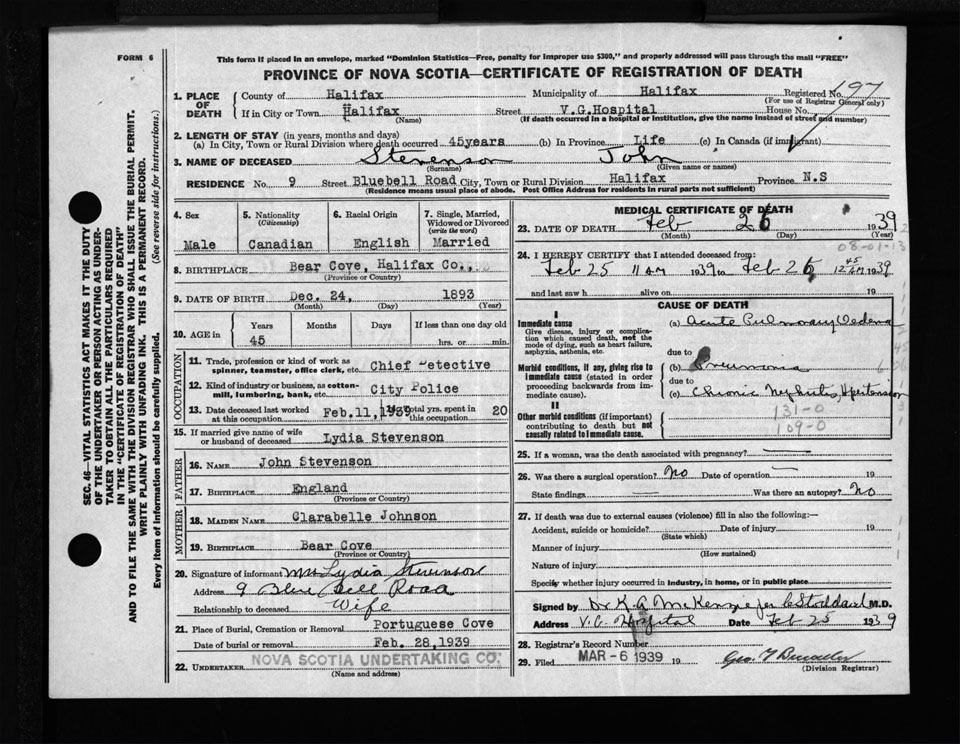 FORM 6
This form if placed in an envelope, marked "Dominion Statistics—Free, penalty for improper use $300," and properly addressed will pass through the mail "FREE"
PROVINCE OF NOVA SCOTIA—CERTIFICATE OF REGISTRATION OF DEATH
SEC. 46—VITAL STATISTICS ACT MAKES IT THE DUTY
OF THE UNDERTAKER OR PERSON ACTING AS UNDER-
TAKER TO OBTAIN ALL THE PARTICULARS REQUIRED
IN THE "CERTIFICATE OF REGISTRATION OF DEATH"
AND TO FILE THE SAME WITH THE DIVISION REGISTRAR WHO SHALL ISSUE THE BURIAL PERMIT.
WRITE PLAINLY WITH UNFADING INK. THIS IS A PERMANENT RECORD.
Every item of information should be carefully supplied. (See reverse side for instructions.)
1. PLACE OF DEATH
County of Halifax Municipality of Halifax Registered No. 197
(For use of Registrar General only)
If in City or Town Halifax Street V.G.Hospital House No.
(Name) (If death occurred in a hospital or institution, give the name instead of street and number)
2. LENGTH OF STAY (in years, months and days)
(a) In City, Town or Rural Division where death occurred 45years (b) In Province Life (c) In Canada (if immigrant)
3. NAME OF DECEASED Stevenson John
(Surname) (Given name or names)
RESIDENCE No. 9 Street Bluebell Road City, Town or Rural Division Halifax Province N.S
(Residence means usual place of abode. Post Office Address for residents in rural parts not sufficient)
4. Sex
Male
5. Nationality
(Citizenship)
Canadian
6. Racial Origin
English
7. Single, Married,
Widowed or Divorced
(write the word)
Married
8. BIRTHPLACE Bear Cove, Halifax Co.,
(Province or Country)
9. DATE OF BIRTH Dec. 24, 1893
(Month) (Day) (Year)
10. AGE in Years Months Days If less than one day old
45 hrs. or min.
OCCUPATION
11. Trade, profession or kind of work as
spinner, teamster, office clerk, etc. Chief Detective
12. Kind of industry or business, as cotton-
mill, lumbering, bank, etc. City Police
13. Date deceased last worked
at this occupation Feb.11,1939 14. Total yrs. spent in
this occupation 20
15. If married give name of wife
or husband of deceased Lydia Stevenson
FATHER
16. NAME John Stevenson
17. BIRTHPLACE England
(Province or Country)
MOTHER
18. MAIDEN NAME Clarabelle Johnson
19. BIRTHPLACE Bear Cove
(Province or Country)
20. Signature of informant Mrs Lydia Stevenson
Address 9 Blue Bell Road
Relationship to deceased Wife
21. Place of Burial, Cremation or Removal Portuguese Cove
Date of burial or removal Feb. 28,1939
22. UNDERTAKER NOVA SCOTIA UNDERTAKING CO.
(Name and address)
MEDICAL CERTIFICATE OF DEATH
23. DATE OF DEATH Feb 26 1939
(Month) (Day) (Year)
08-01-13
24. I HEREBY CERTIFY that I attended deceased from:
Feb 25 11 AM 1939 to Feb 26 12 45 AM 1939
and last saw h alive on 19
CAUSE OF DEATH
I
Immediate cause
Give disease, injury or complica-
tion which caused death, not the
mode of dying, such as heart failure,
asphyxia, asthenia, etc.
(a) Acute Pulmonary Oedema
due to
Morbid conditions, if any, giving rise to
immediate cause (stated in order
proceeding backwards from im-
mediate cause).
(b) Pneumonia
due to
(c) Chronic Nephritis, Hypertension
II
Other morbid conditions (if important)
contributing to death but not
causally related to immediate cause.
131-0
109-0
25. If a woman, was the death associated with pregnancy?
26. Was there a surgical operation? No Date of operation 19
State findings Was there an autopsy? No
27. If death was due to external causes (violence) fill in also the following:—
Accident, suicide or homicide? Date of injury 19
(State which)
Manner of injury
(How sustained)
Nature of injury
Specify whether injury occurred in industry, in home, or in public place
Signed by Dr K A McKenzie per C Stoddard M.D.
Address V.G. Hospital Date Feb 25 1939
28. Registrar's Record Number
29. Filed MAR - 6 1939 19
(Division Registrar)